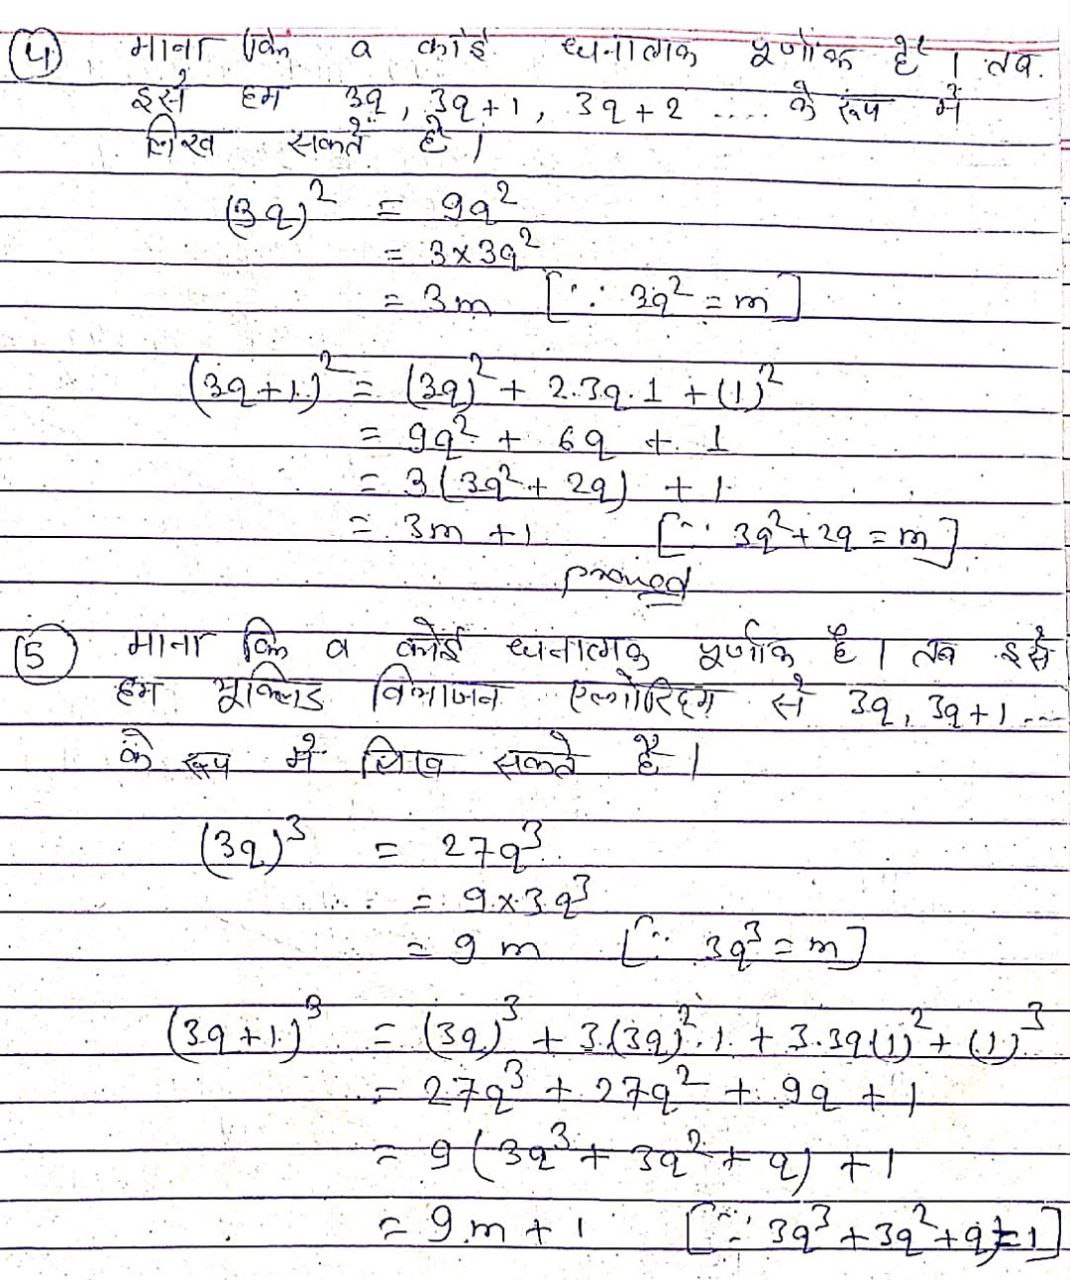 (4) माना कि a कोई धनात्मक पूर्णांक है । तब
इसे हम 3q, 3q+1, 3q+2 ..... के रूप में
लिख सकते है ।
(3q)² = 9q²
= 3×3q²
= 3m [∵ 3q² = m]
(3q+1)² = (3q)² + 2.3q.1 + (1)²
= 9q² + 6q + 1
= 3(3q²+2q) + 1
= 3m + 1 [∵ 3q²+2q = m]
proved
(5) माना कि a कोई धनात्मक पूर्णांक है । तब इसे
हम यूक्लिड विभाजन एल्गोरिद्म से 3q, 3q+1 ....
के रूप में लिख सकते है ।
(3q)³ = 27q³
= 9×3q³
= 9m [∵ 3q³ = m]
(3q+1)³ = (3q)³ + 3.(3q)².1 + 3.3q(1)² + (1)³
= 27q³ + 27q² + 9q + 1
= 9(3q³ + 3q² + q) + 1
= 9m + 1 [∵ 3q³+3q²+q)=1]